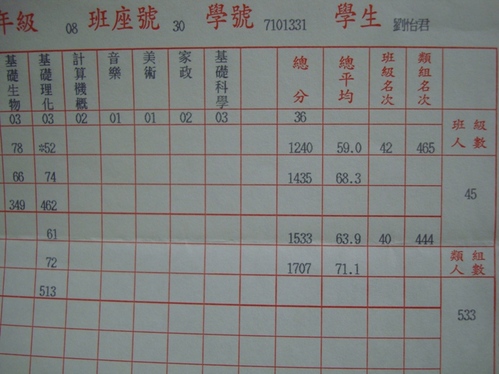 年級 08 班座號 30 學號 7101331 學生 劉怡君
基礎生物 基礎理化 計算機概 音樂 美術 家政 基礎科學 總分 總平均 班級名次 類組名次
03 03 02 01 01 02 03 36
班級人數
78 *52 1240 59.0 42 465
66 74 1435 68.3
45
349 462
61 1533 63.9 40 444
類組人數
72 1707 71.1
513
533